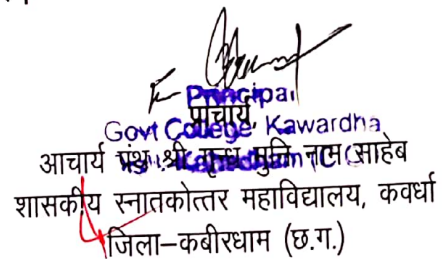 Principal
प्राचार्य,
Govt College Kawardha
आचार्य पंथ श्री गृन्ध मुनि नाम साहेब
शासकीय स्नातकोत्तर महाविद्यालय, कवर्धा
जिला–कबीरधाम (छ.ग.)